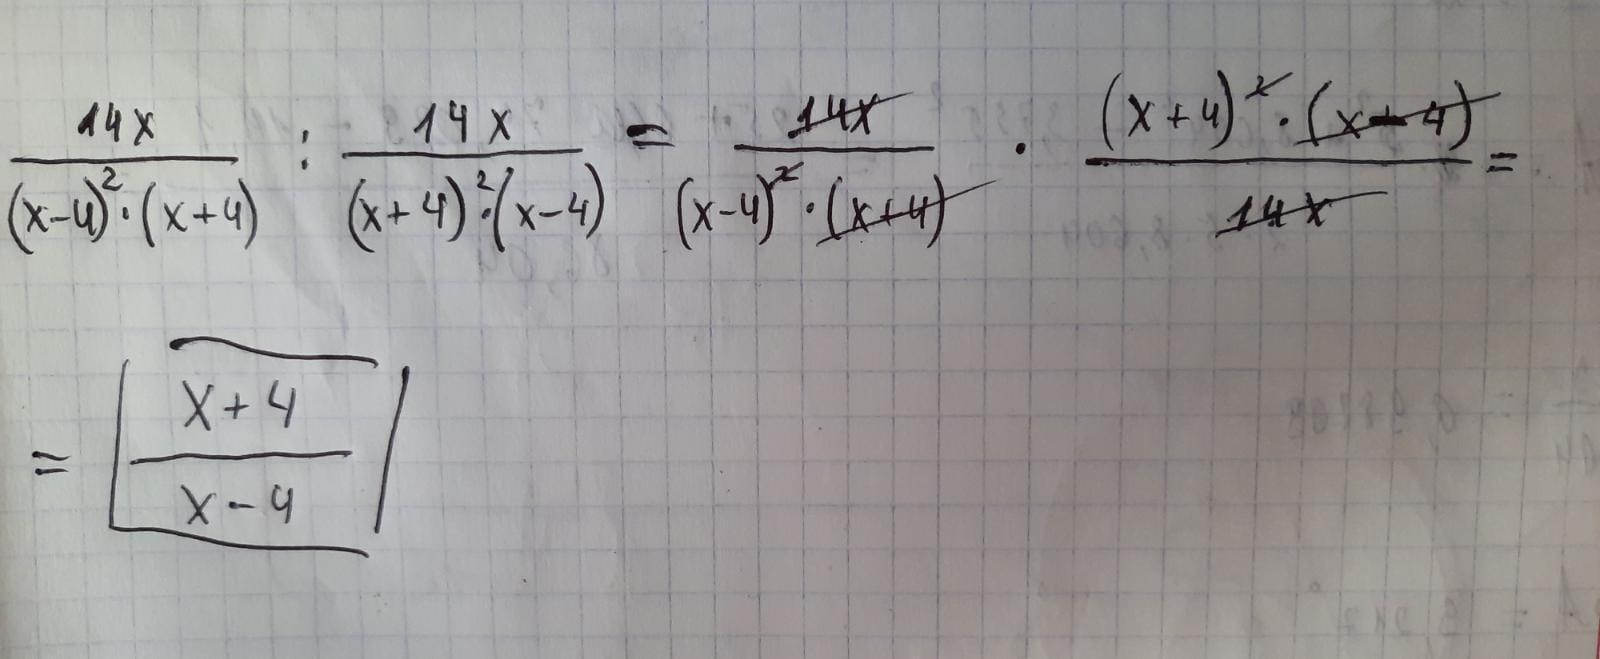 14x / (x-4)²·(x+4) : 14x / (x+4)²·(x-4) = 14x / (x-4)²·(x+4) · (x+4)²·(x-4) / 14x =
= x+4 / x-4